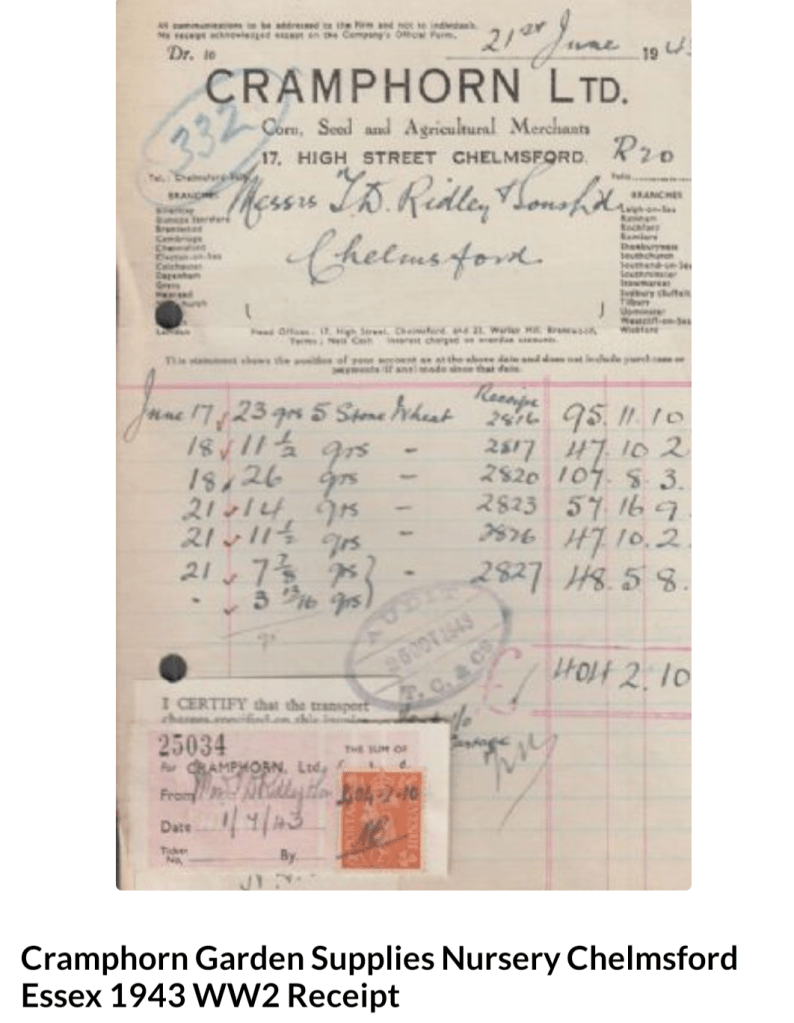 All communications to be addressed to the Firm and not to individuals.
No receipt acknowledged except on the Company's Official Form.
Dr. to
21st June 194
CRAMPHORN LTD.
332
Corn, Seed and Agricultural Merchants
17, HIGH STREET CHELMSFORD.
R20
Tel.: Chelmsford
Folio
BRANCHES
BRANCHES
Messrs T.D. Ridley & Sons Ltd
Chelmsford
Bishops Stortford
Brentwood
Cambridge
Chelmsford
Clacton-on-Sea
Colchester
Dagenham
Grays
London
Leigh-on-Sea
Rainham
Rochford
Romford
Shoeburyness
Southchurch
Southend-on-Sea
Southminster
Stowmarket
Sudbury (Suffolk
Tilbury
Upminster
Westcliff-on-Sea
Wickford
Head Offices: 17, High Street, Chelmsford, and 21, Warley Hill, Brentwood.
Terms: Nett Cash Interest charged on overdue accounts.
This statement shows the position of your account as at the above date and does not include purchases or
payments (if any) made since that date.
Receipt
June 17 23 qrs 5 Stone Wheat 2816 95. 11. 10
18 11 1/2 qrs - 2817 47. 10 2
18 26 qrs - 2820 107. 8. 3.
21 14 qrs - 2823 57. 16 9
21 11 1/2 qrs - 2826 47. 10. 2.
21 7 7/8 qrs - 2827 48. 5 8.
3 13/16 qrs
AUDIT
25 OCT 1943
T. C. & CO
£ 404 2. 10
I CERTIFY that the transport
charges specified on this invoice
25034
THE SUM OF
For CRAMPHORN, Ltd.,
£ s. d.
From
£404-2-10
Date 1/7/43
Ticket
No.
By
Cramphorn Garden Supplies Nursery Chelmsford
Essex 1943 WW2 Receipt